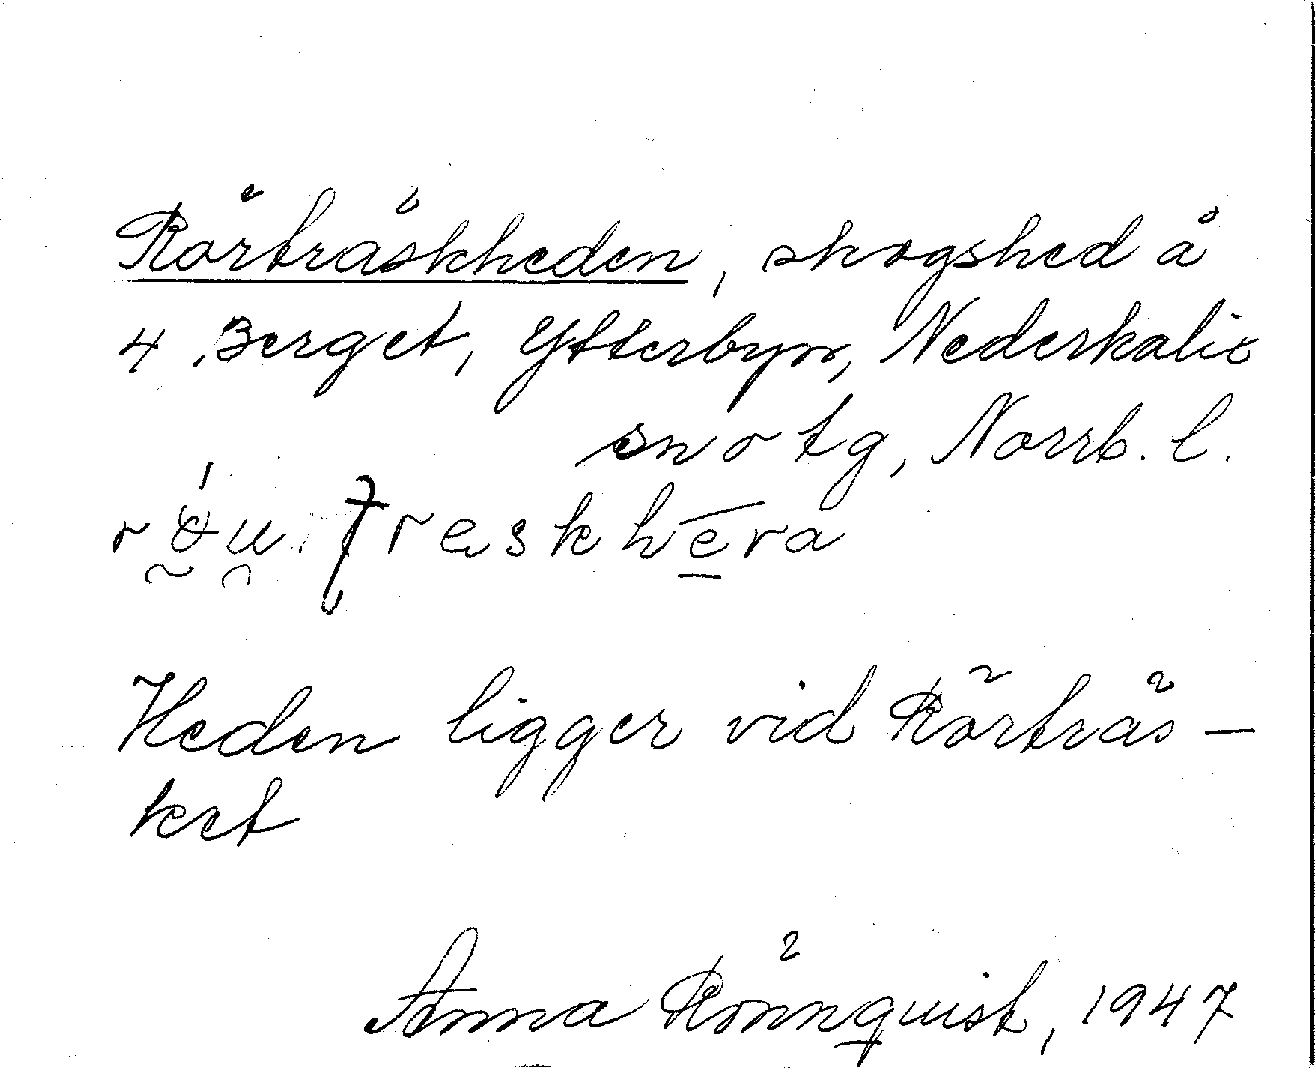 Rörträskheden, skogshed å
4 Berget, Ytterbyn, Nederkalix
sn o tg, Norrb. l.
Heden ligger vid Rörträs-
ket
Anna Rönnquist, 1947